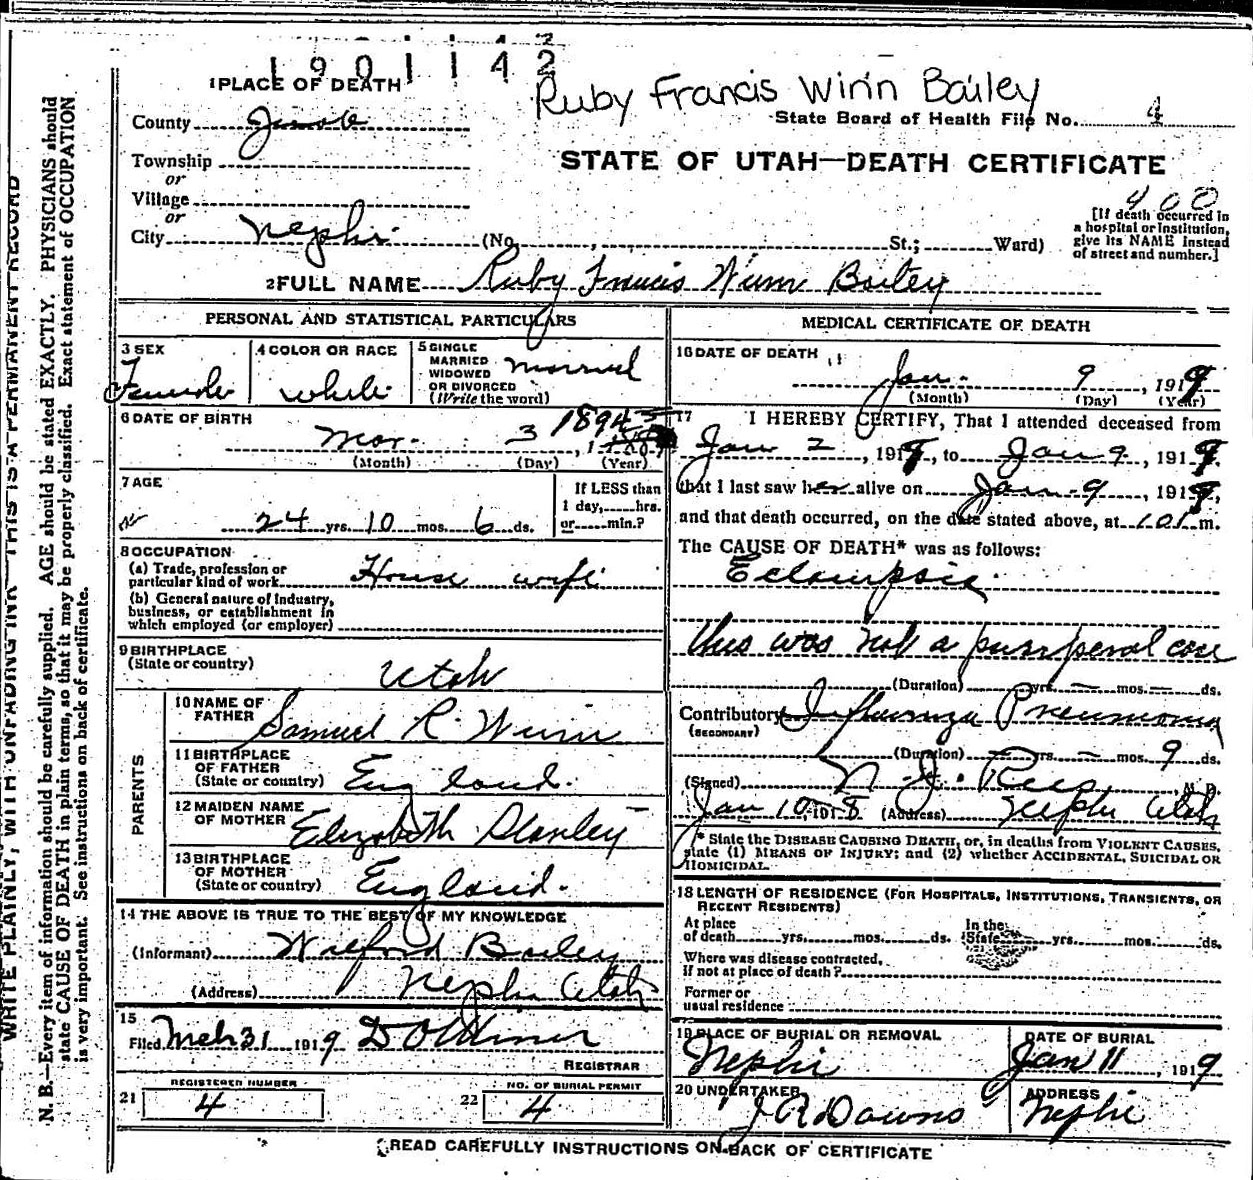 1901142
Ruby Francis Winn Bailey
1 PLACE OF DEATH
State Board of Health File No. 4
County Juab
STATE OF UTAH—DEATH CERTIFICATE
Township
or
Village
or
City Nephi (No. St.; Ward)
400
[If death occurred in
a hospital or institution,
give its NAME instead
of street and number.]
2 FULL NAME Ruby Francis Winn Bailey
PERSONAL AND STATISTICAL PARTICULARS
3 SEX
Female
4 COLOR OR RACE
White
5 SINGLE
MARRIED
WIDOWED
OR DIVORCED
(Write the word)
married
6 DATE OF BIRTH
Mar. 3, 1894
(Month) (Day) (Year)
7 AGE
24 yrs. 10 mos. 6 ds.
If LESS than
1 day, hrs.
or min.?
8 OCCUPATION
(a) Trade, profession or
particular kind of work House wife
(b) General nature of Industry,
business, or establishment in
which employed (or employer)
9 BIRTHPLACE
(State or country)
Utah
PARENTS
10 NAME OF
FATHER
Samuel R. Winn
11 BIRTHPLACE
OF FATHER
(State or country)
England.
12 MAIDEN NAME
OF MOTHER
Elizabeth Stanley
13 BIRTHPLACE
OF MOTHER
(State or country)
England.
14 THE ABOVE IS TRUE TO THE BEST OF MY KNOWLEDGE
(Informant) Walford Bailey
(Address) Nephi Utah
15
Filed Mch 31 1919
REGISTRAR
REGISTERED NUMBER
21 4
NO. OF BURIAL PERMIT
22 4
MEDICAL CERTIFICATE OF DEATH
16 DATE OF DEATH
Jan. 9, 1919
(Month) (Day) (Year)
17 I HEREBY CERTIFY, That I attended deceased from
Jan 2, 1919, to Jan 9, 1919,
that I last saw her alive on Jan. 9, 1919,
and that death occurred, on the date stated above, at 101 m.
The CAUSE OF DEATH* was as follows:
Eclampsia.
this was not a puerperal case
(Duration) yrs. — mos. — ds.
Contributory Influenza Pneumonia
(SECONDARY)
(Duration) — yrs. — mos. 9 ds.
(Signed) M. D.
Jan 10, 1918 (Address) Nephi Utah
* State the DISEASE CAUSING DEATH, or, in deaths from VIOLENT CAUSES,
state (1) MEANS OF INJURY; and (2) whether ACCIDENTAL, SUICIDAL OR
HOMICIDAL.
18 LENGTH OF RESIDENCE (FOR HOSPITALS, INSTITUTIONS, TRANSIENTS, OR
RECENT RESIDENTS)
At place
of death yrs. mos. ds.
In the
State yrs. mos. ds.
Where was disease contracted,
if not at place of death?
Former or
usual residence
19 PLACE OF BURIAL OR REMOVAL
Nephi
DATE OF BURIAL
Jan 11, 1919
20 UNDERTAKER
J R Downs
ADDRESS
Nephi
READ CAREFULLY INSTRUCTIONS ON BACK OF CERTIFICATE
WRITE PLAINLY, WITH UNFADING INK—THIS IS A PERMANENT RECORD
N. B.—Every item of information should be carefully supplied. AGE should be stated EXACTLY. PHYSICIANS should
state CAUSE OF DEATH in plain terms, so that it may be properly classified. Exact statement of OCCUPATION
is very important. See instructions on back of certificate.